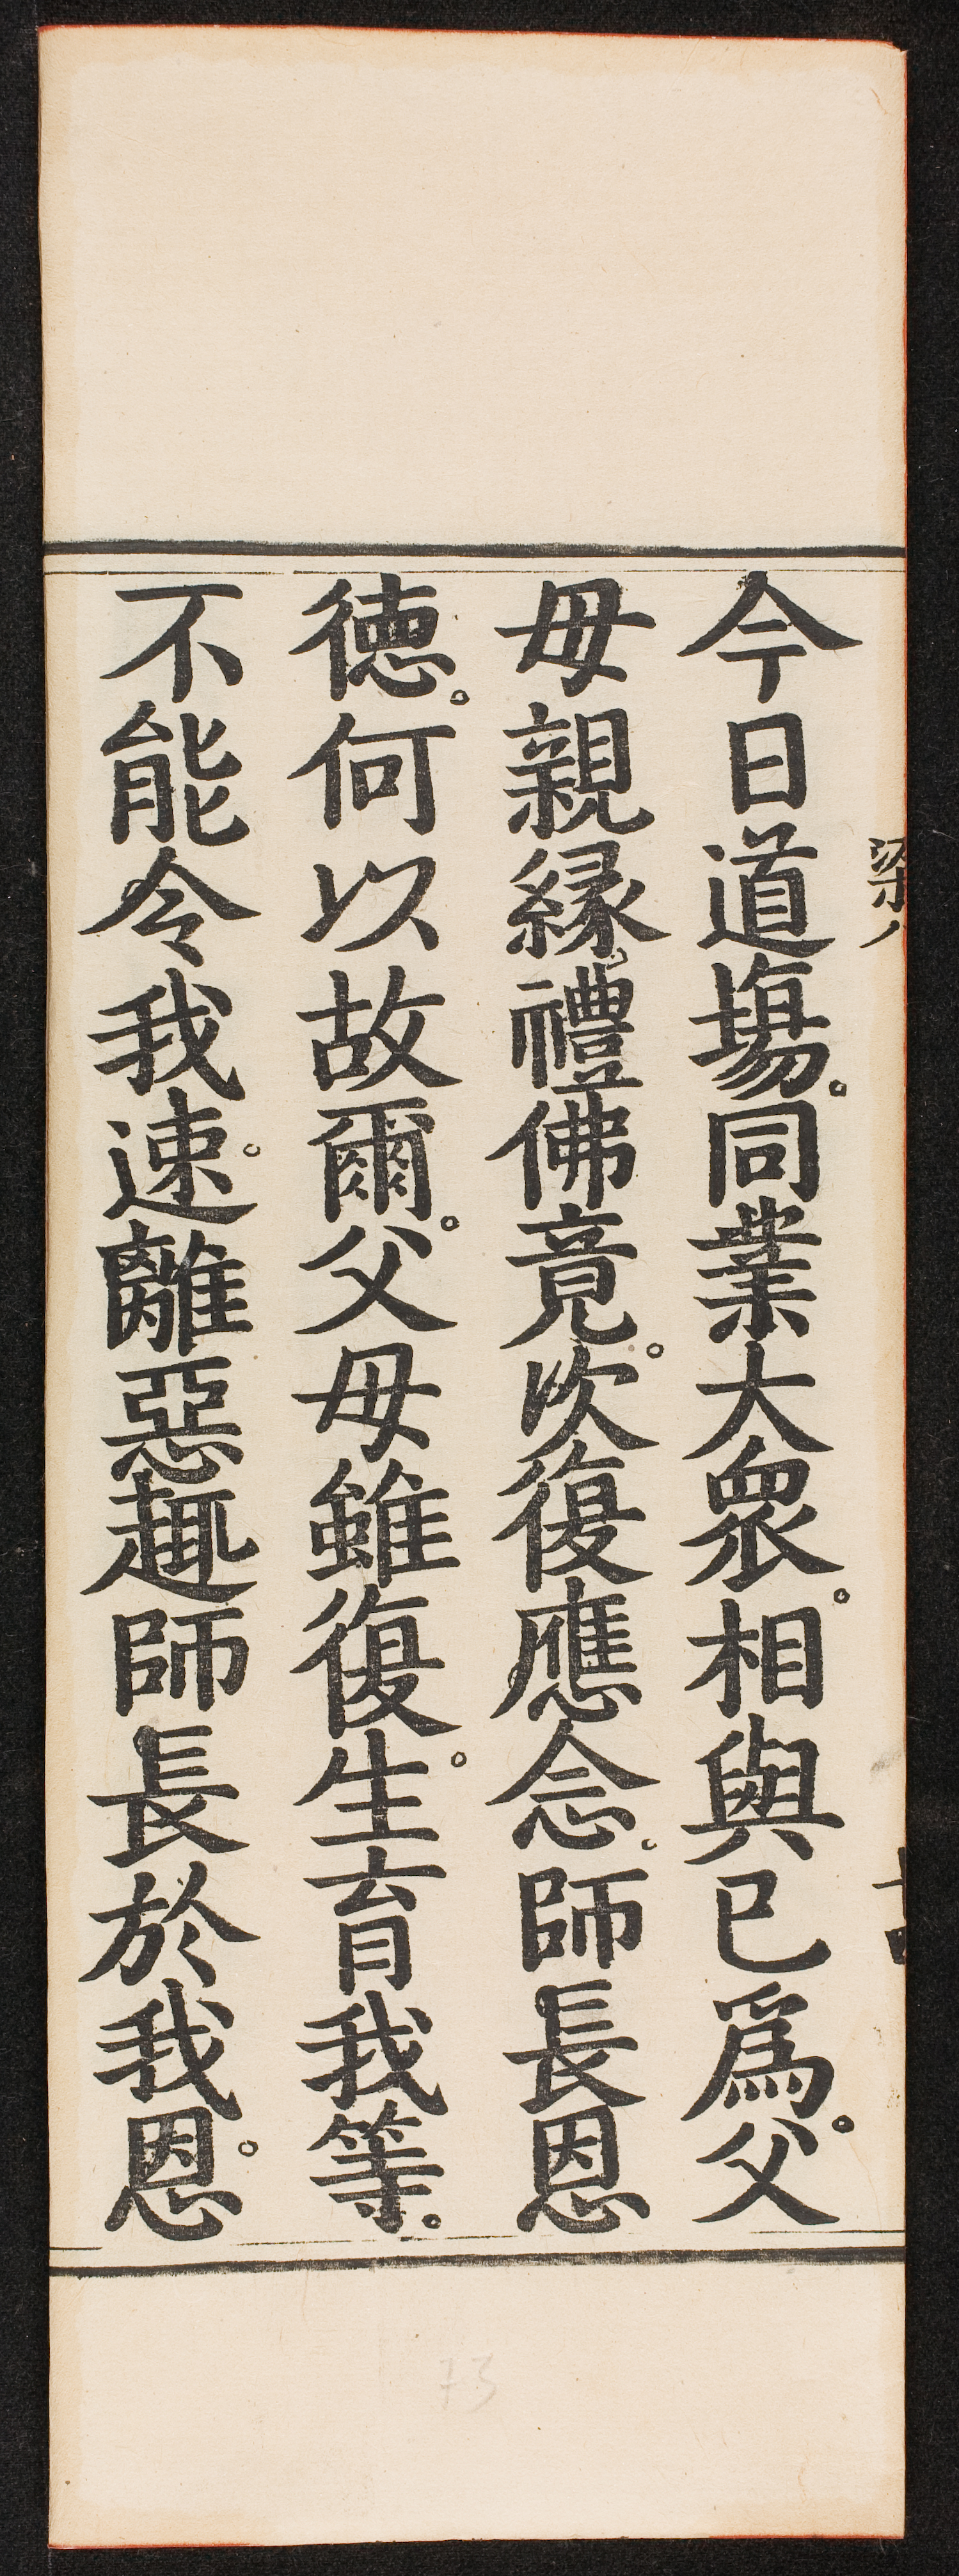 今日道場。同業大衆。相與已爲。父
母親縁。禮佛竟。次復應念。師長恩
德。何以故爾。父母雖復。生育我等。
不能令我速。離惡趣師長於我恩。
梁八
73